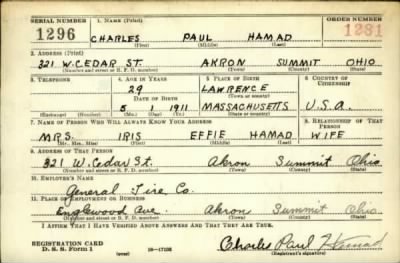 SERIAL NUMBER 1. NAME (Print) ORDER NUMBER
1296 CHARLES PAUL HAMAD 1281
(First) (Middle) (Last)
2. ADDRESS (Print)
321 W. CEDAR ST. AKRON SUMMIT OHIO
(Number and street or R. F. D. number) (Town) (County) (State)
3. TELEPHONE 4. AGE IN YEARS 5. PLACE OF BIRTH 6. COUNTRY OF CITIZENSHIP
29 LAWRENCE
DATE OF BIRTH (Town or county)
5 1 1911 MASSACHUSETTS U.S.A.
(Exchange) (Number) (Mo.) (Day) (Yr.) (State or country)
7. NAME OF PERSON WHO WILL ALWAYS KNOW YOUR ADDRESS 8. RELATIONSHIP OF THAT PERSON
MRS. IRIS EFFIE HAMAD WIFE
(Mr., Mrs., Miss) (First) (Middle) (Last)
9. ADDRESS OF THAT PERSON
321 W. Cedar St. Akron Summit Ohio
(Number and street or R. F. D. number) (Town) (County) (State)
10. EMPLOYER'S NAME
General Tire Co.
11. PLACE OF EMPLOYMENT OR BUSINESS
Englewood Ave Akron Summit Ohio
(Number and street or R. F. D. number) (Town) (County) (State)
I AFFIRM THAT I HAVE VERIFIED ABOVE ANSWERS AND THAT THEY ARE TRUE.
REGISTRATION CARD
D. S. S. Form 1 16—17105 Charles Paul Hamad
(over) (Registrant's signature)